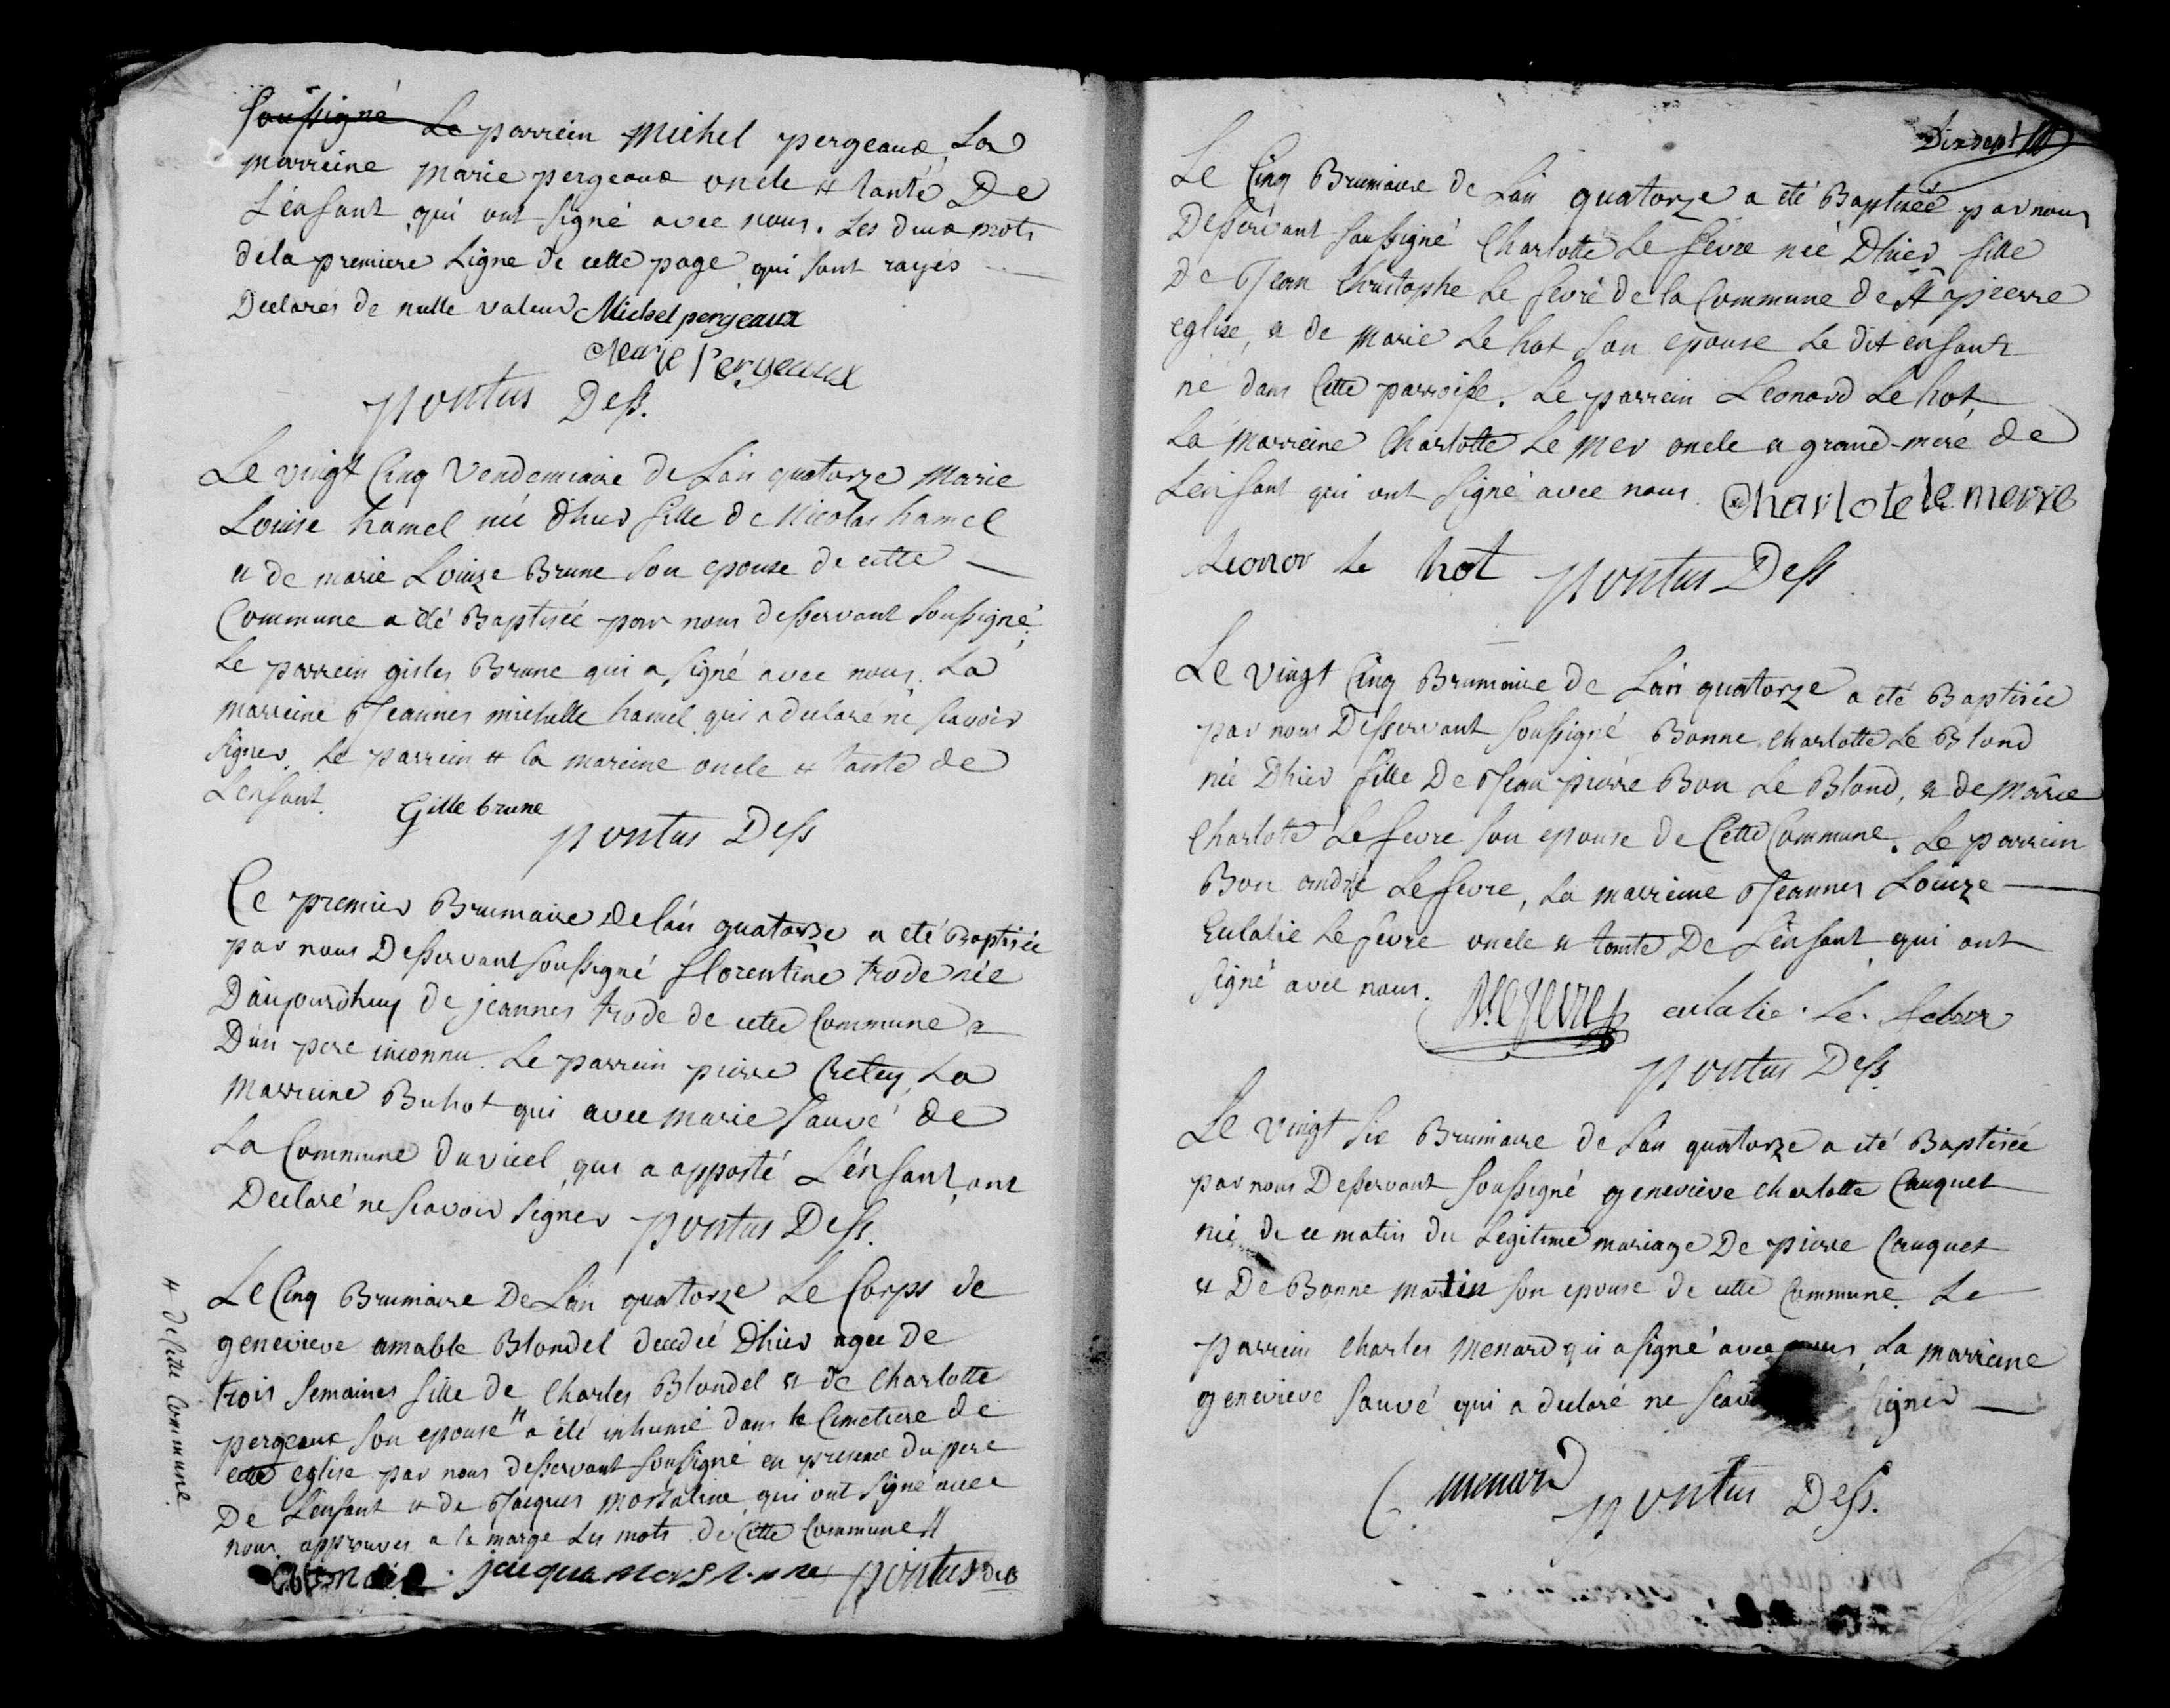 soussigné Le parrein Michel pergeaux, La
marreine marie pergeaux oncle et tante De
L'enfant qui ont signé avec nous. Les deux mots
dela premiere Ligne de cette page qui sont rayés
Declarés de nulle valeur Michel pergeaux
Marie Pergeaux
pontus Dess.
Le vingt Cinq vendemiaire de L'an quatorze marie
Louise hamel née d'hier fille de Nicolas hamel
et de marie Louize Brune son epouse de cette
Commune a été Baptisée par nous desservant soussigné.
Le parrein gisles Brune qui a signé avec nous. La
marreine Jeannes michelle hamel qui a declaré ne scavoir
signer. Le parrein et la mareine oncle et tante de
L'enfant. Gille brune
pontus Dess
Le premier Brumaire de l'an quatorze a été Baptisée
par nous Desservant soussigné florentine trode née
D'aujourdhuy de jeannes trode de cette Commune et
D'un pere inconnu. Le parrein pierre Cretey, La
Marreine Buhot qui avec marie sauvé de
La Commune du vicel qui a apporté L'enfant, ont
Declaré ne scavoir signer pontus Dess.
Le Cinq Brumaire De L'an quatorze Le Corps de
genevieve amable Blondel decedée D'hier agee De
trois semaines fille de Charles Blondel et de Charlotte
pergeaux son epouse # a été inhumé dans le Cimetiere de
cette eglise par nous desservant soussigné en presence du pere
De L'enfant et de Jacques morsaline qui ont signé avec
nous. approuvés a la marge Les mots de Cette Commune #
jacque morsaline pontus des
# de Cette Commune.
Dix sept
Le Cinq Brumaire de L'an quatorze a été Baptisée par nous
Desservant soussigné Charlotte Le fevre née D'hier fille
De Jean Christophe Le fevre de la Commune de St pierre
eglise, et de marie Le hot son epouse Le dit enfant
né dans Cette parroisse. Le parrein Leonard Le hot,
La Marreine Charlotte Le Mer oncle et grand-mere de
L'enfant qui ont signé avec nous. Charlote le merre
Leonor le hot pontus Dess
Le vingt Cinq Brumaire de L'an quatorze a été Baptisée
par nous Desservant soussigné Bonne Charlotte Le Blond
née D'hier fille De Jean pierre Bon Le Blond, et de Marie
Charlote Le fevre son epouse de Cette Commune. Le parrein
Bon andré Le fevre, La marreine Jeannes Louize
Eulalie Le fevre oncle et tante De L'enfant qui ont
signé avec nous. Lefevre eulalie. Le. febvr
pontus Dess.
Le vingt six Brumaire de L'an quatorze a été Baptisée
par nous Desservant soussigné genevieve Charlotte Cauquet
née de ce matin du Legitime mariage De pierre Cauquet
et De Bonne martin son epouse de cette Commune. Le
parrein Charles Menard qui a signé avec nous, La marreine
genevieve sauvé qui a declaré ne signer
C. menard
pontus Dess.